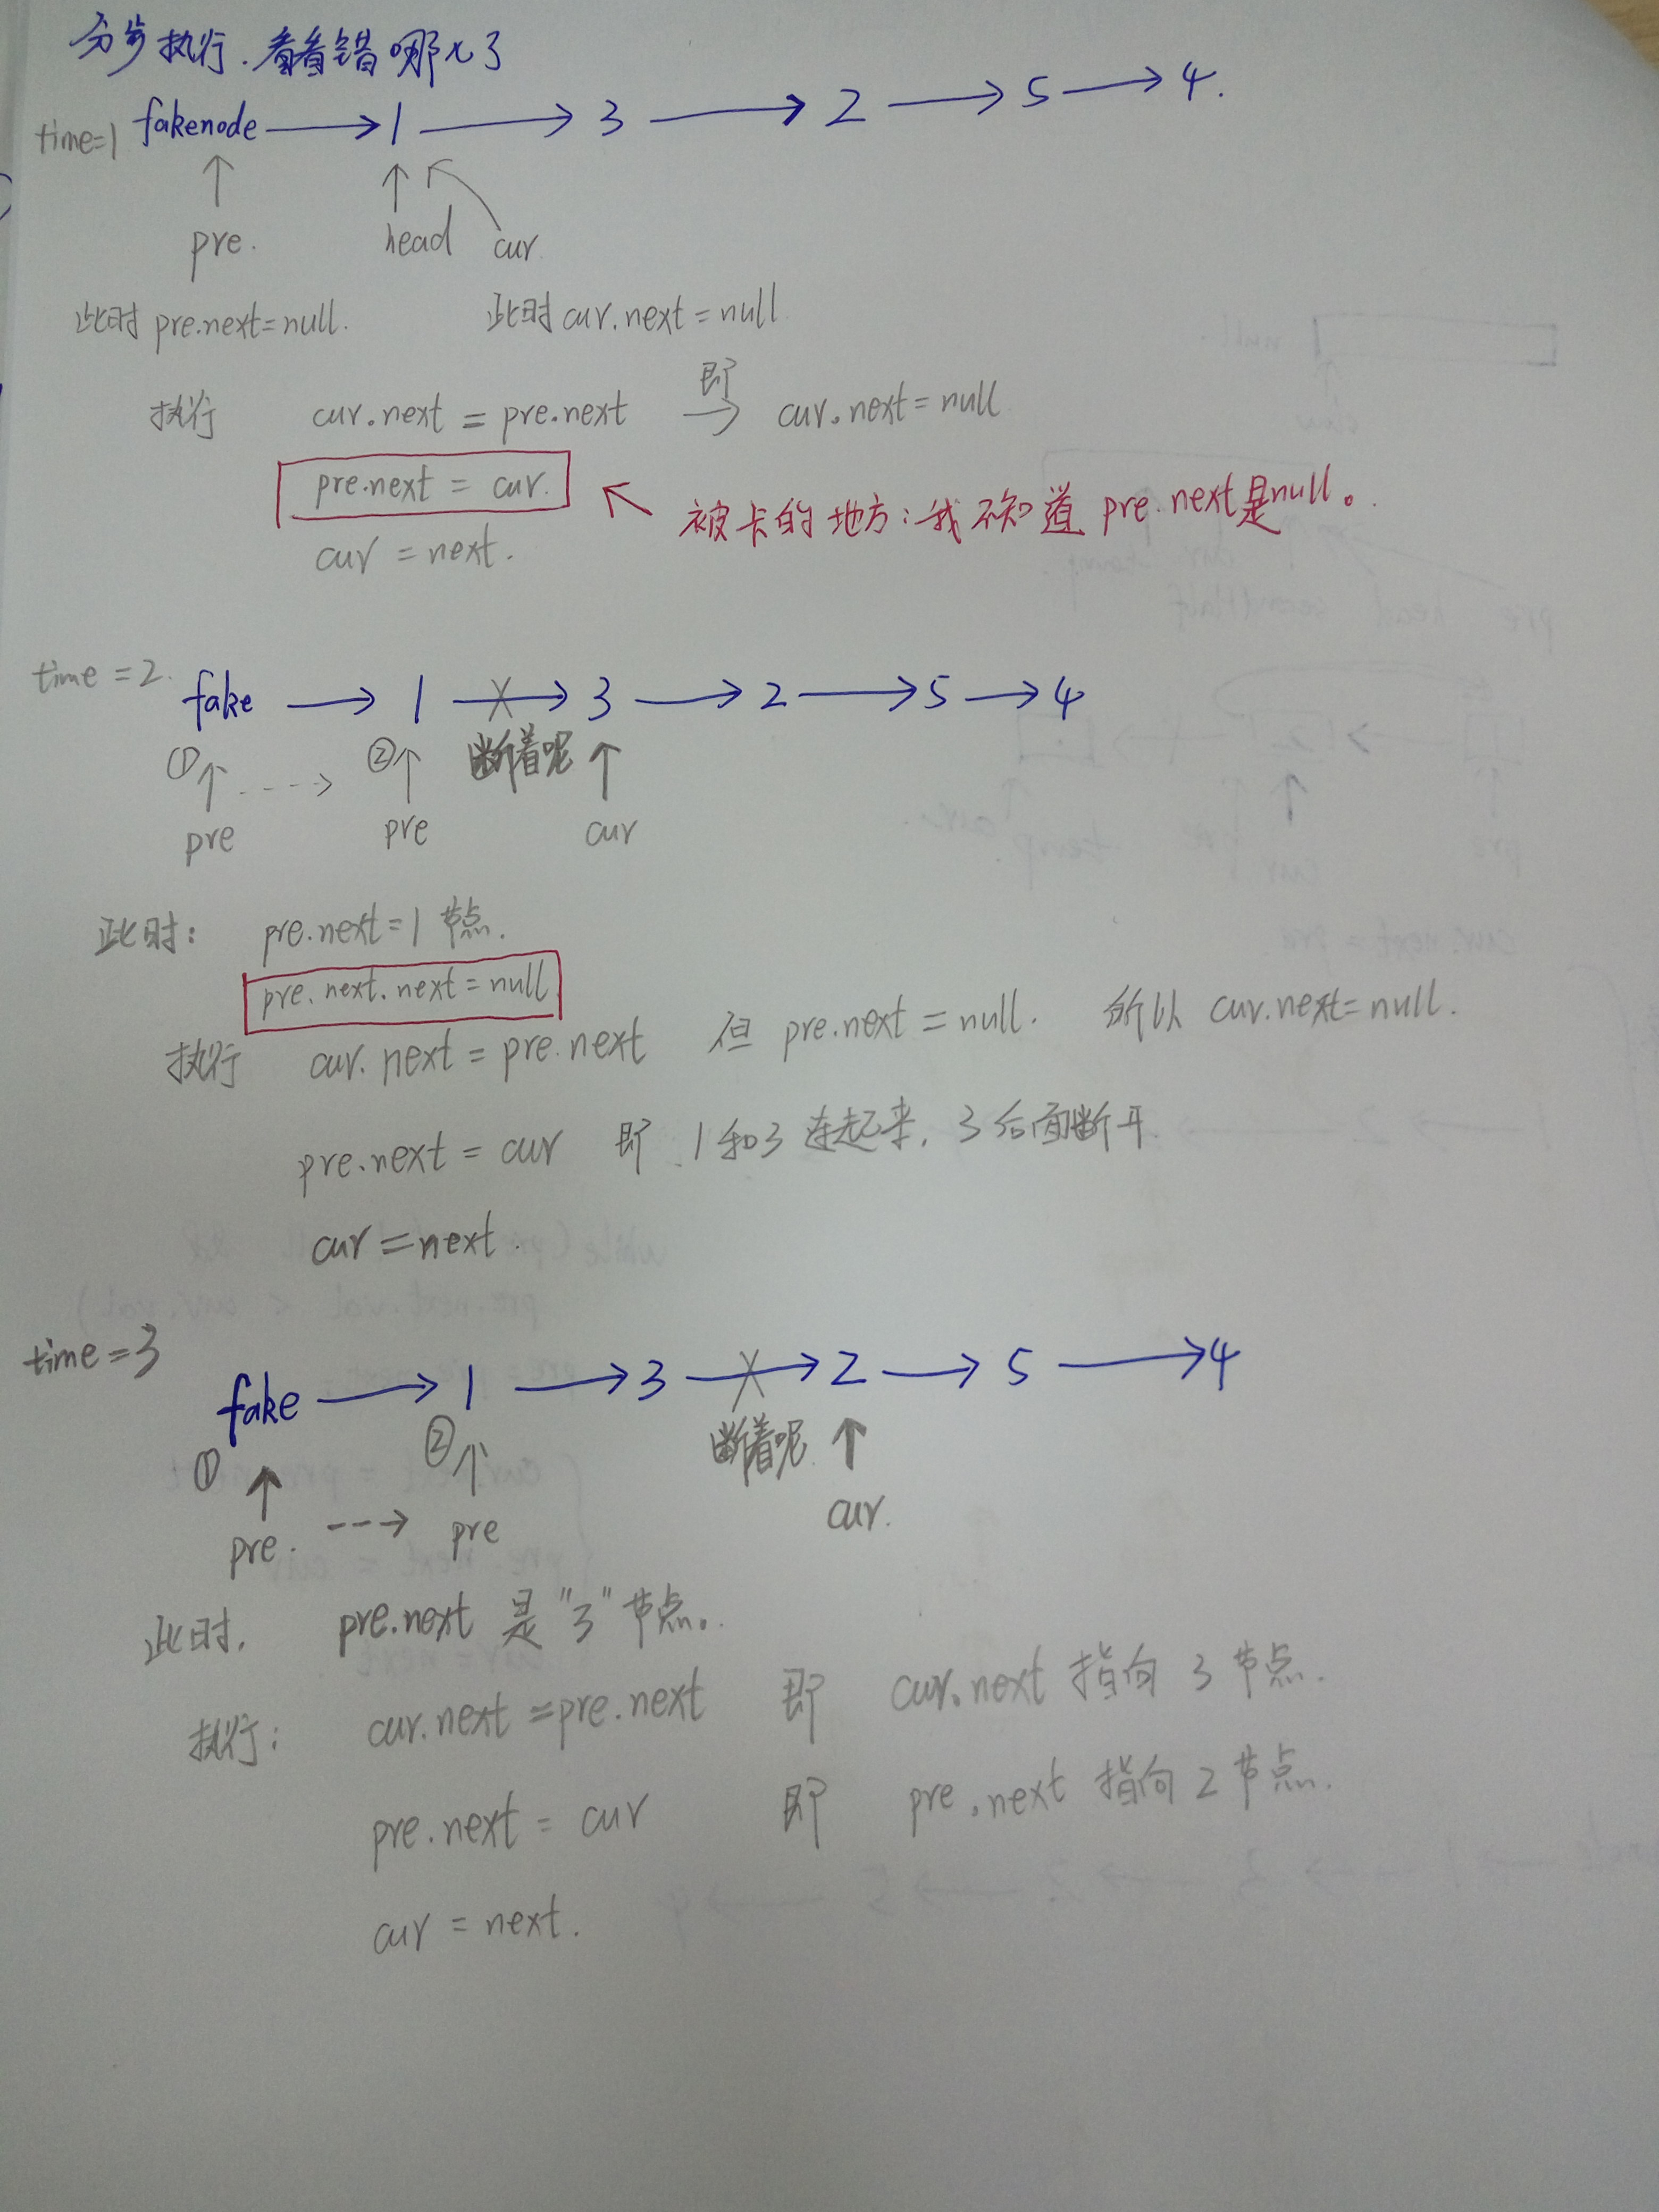 分步执行.看看错哪儿了
time=1 fakenode → 1 → 3 → 2 → 5 → 4.
↑ ↑ ↖
pre. head cur
此时 pre.next=null. 此时 cur.next=null
执行 cur.next = pre.next 即→ cur.next=null
pre.next = cur. ↖ 被卡的地方:我不知道 pre.next是null。
cur = next.
time=2. fake → 1 → 3 → 2 → 5 → 4
①↑ ---> ②↑ 断着呢 ↑
pre pre cur
此时: pre.next=1 节点.
pre.next.next=null
执行 cur.next = pre.next 但 pre.next = null. 所以 cur.next=null.
pre.next = cur 即 1和3连起来, 3后面断开
cur = next.
time=3 fake → 1 → 3 → 2 → 5 → 4
① ↑ ②↑ 断着呢 ↑
pre. ---> pre cur.
此时, pre.next 是"3"节点。
执行: cur.next=pre.next 即 cur.next 指向 3 节点.
pre.next = cur 即 pre.next 指向 2 节点.
cur = next.